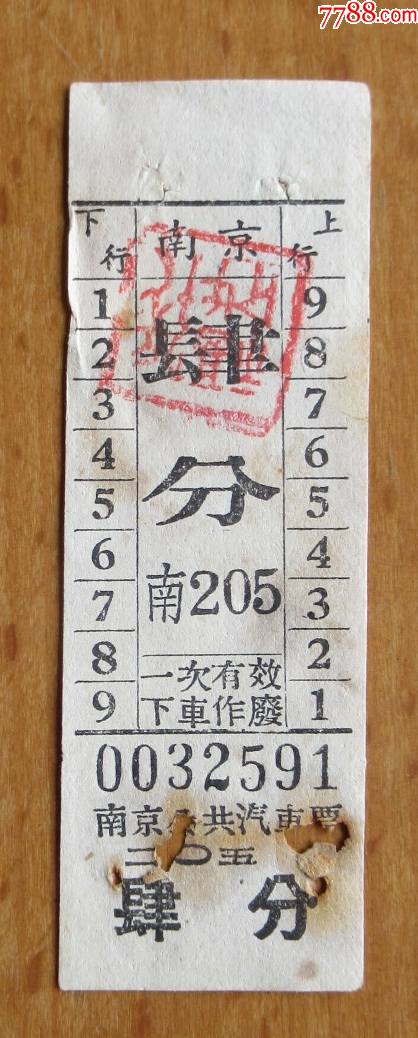 7788.com
下行 南京 上行
1 9
2 肆 8
3 7
4 6
5 分 5
6 4
7 南205 3
8 一次有效 2
9 下車作廢 1
0032591
南京公共汽車票
二〇五
肆分